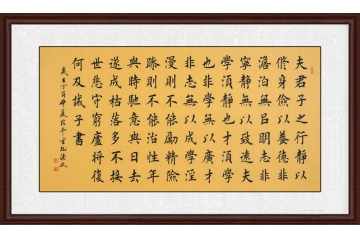 夫君子之行靜以
修身儉以養德非
澹泊無以明志非
寧靜無以致遠夫
學須靜也才須學
也非學無以廣才
非志無以成學淫
慢則不能勵精險
躁則不能治性年
與時馳意與日去
遂成枯落多不接
世悲守窮廬將復
何及誡子書